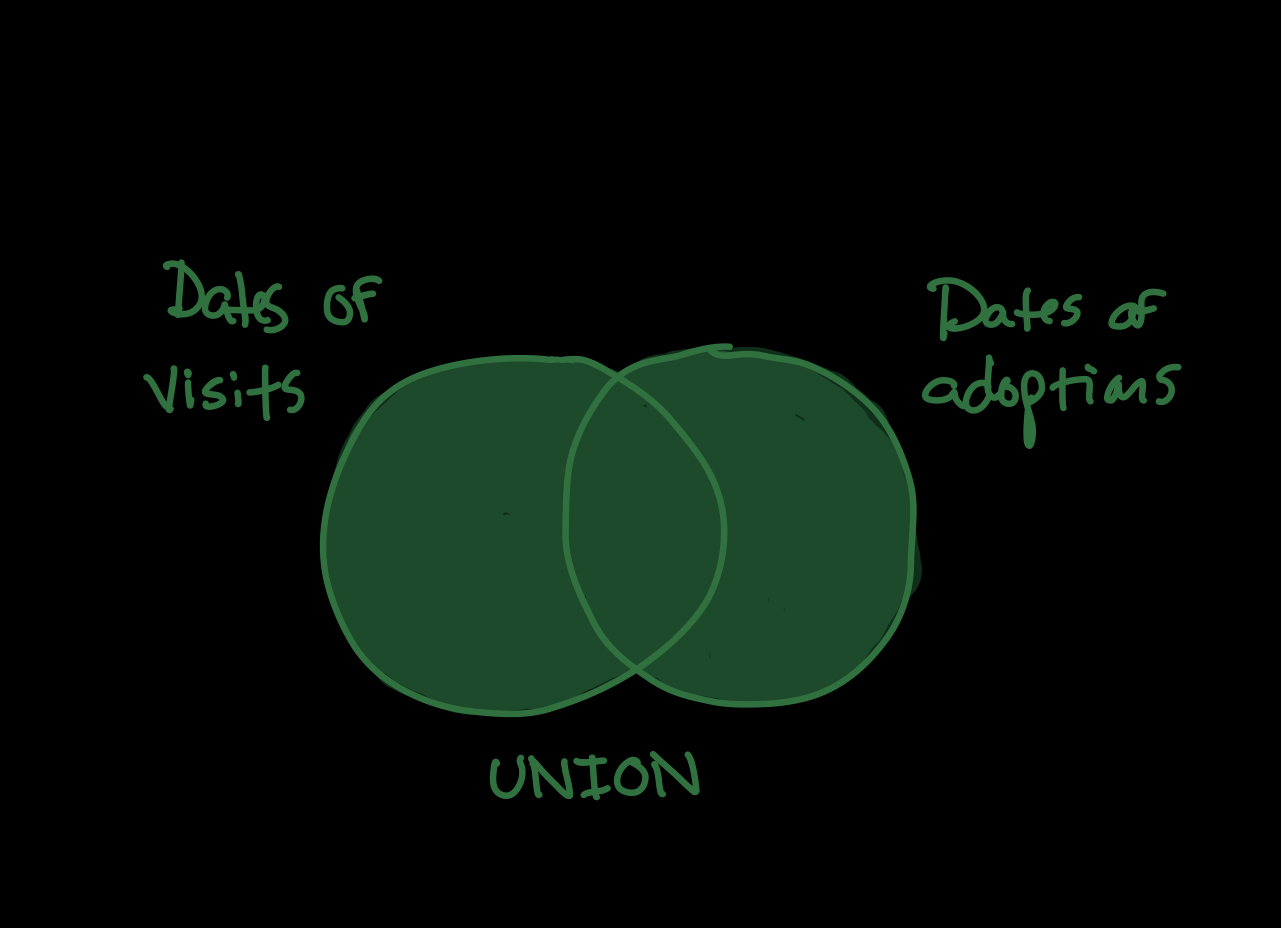 Dates of
visits
Dates of
adoptions
UNION